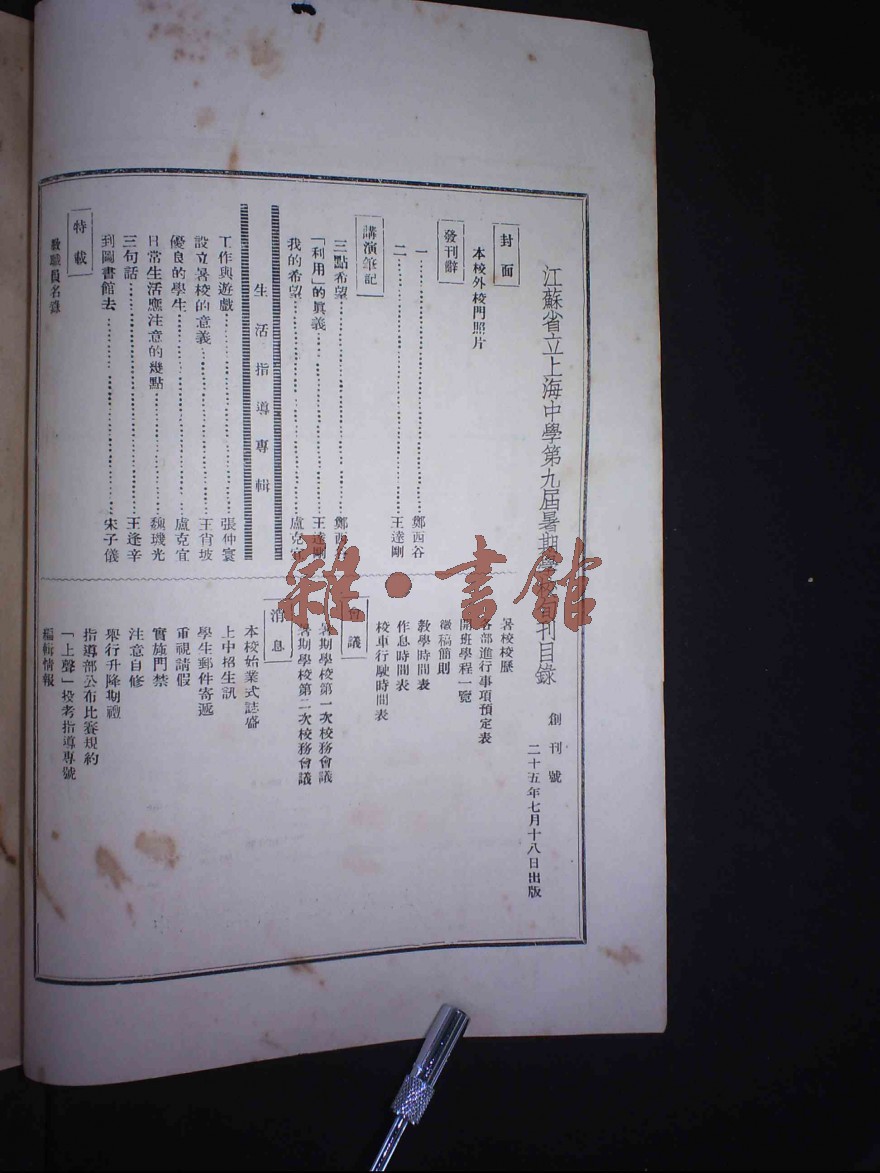 江蘇省立上海中學第九屆暑期學校 刊目錄
創刊號
二十五年七月十八日出版
封面
本校外校門照片
發刊辭
一………………鄭西谷
二………………王達剛
講演筆記
三點希望………………鄭西谷
「利用」的眞義………………王達剛
我的希望………………盧克宜
生活指導專輯
工作與遊戲………………張仲寰
設立暑校的意義………………王肖坡
優良的學生………………盧克宜
日常生活應注意的幾點………………魏璣光
三句話………………王逢辛
到圖書館去………………宋子儀
特載
教職員名錄
暑校校歷
各部進行事項預定表
開班學程一覽
徵稿簡則
教學時間表
作息時間表
校車行駛時間表
議
暑期學校第一次校務會議
暑期學校第二次校務會議
消息
本校始業式誌盛
上中招生訊
學生郵件寄遞
重視請假
實施門禁
注意自修
舉行升降期禮
指導部公布比賽規約
「上聲」投考指導專號
編輯情報
雜·書館